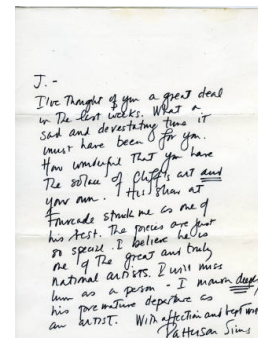 J. -
I've thought of you a great deal
in the last weeks. What a
sad and devastating time it
must have been for you.
How wonderful that you have
the solace of Cliff's art and
your own. His show at
Fourcade struck me as one of
his best. The pieces are just
so special. I believe he is
one of the great and truly
national artists. I will miss
him as a person - I mourn deeply
his premature departure as
an artist. With affection and
Patterson Sims